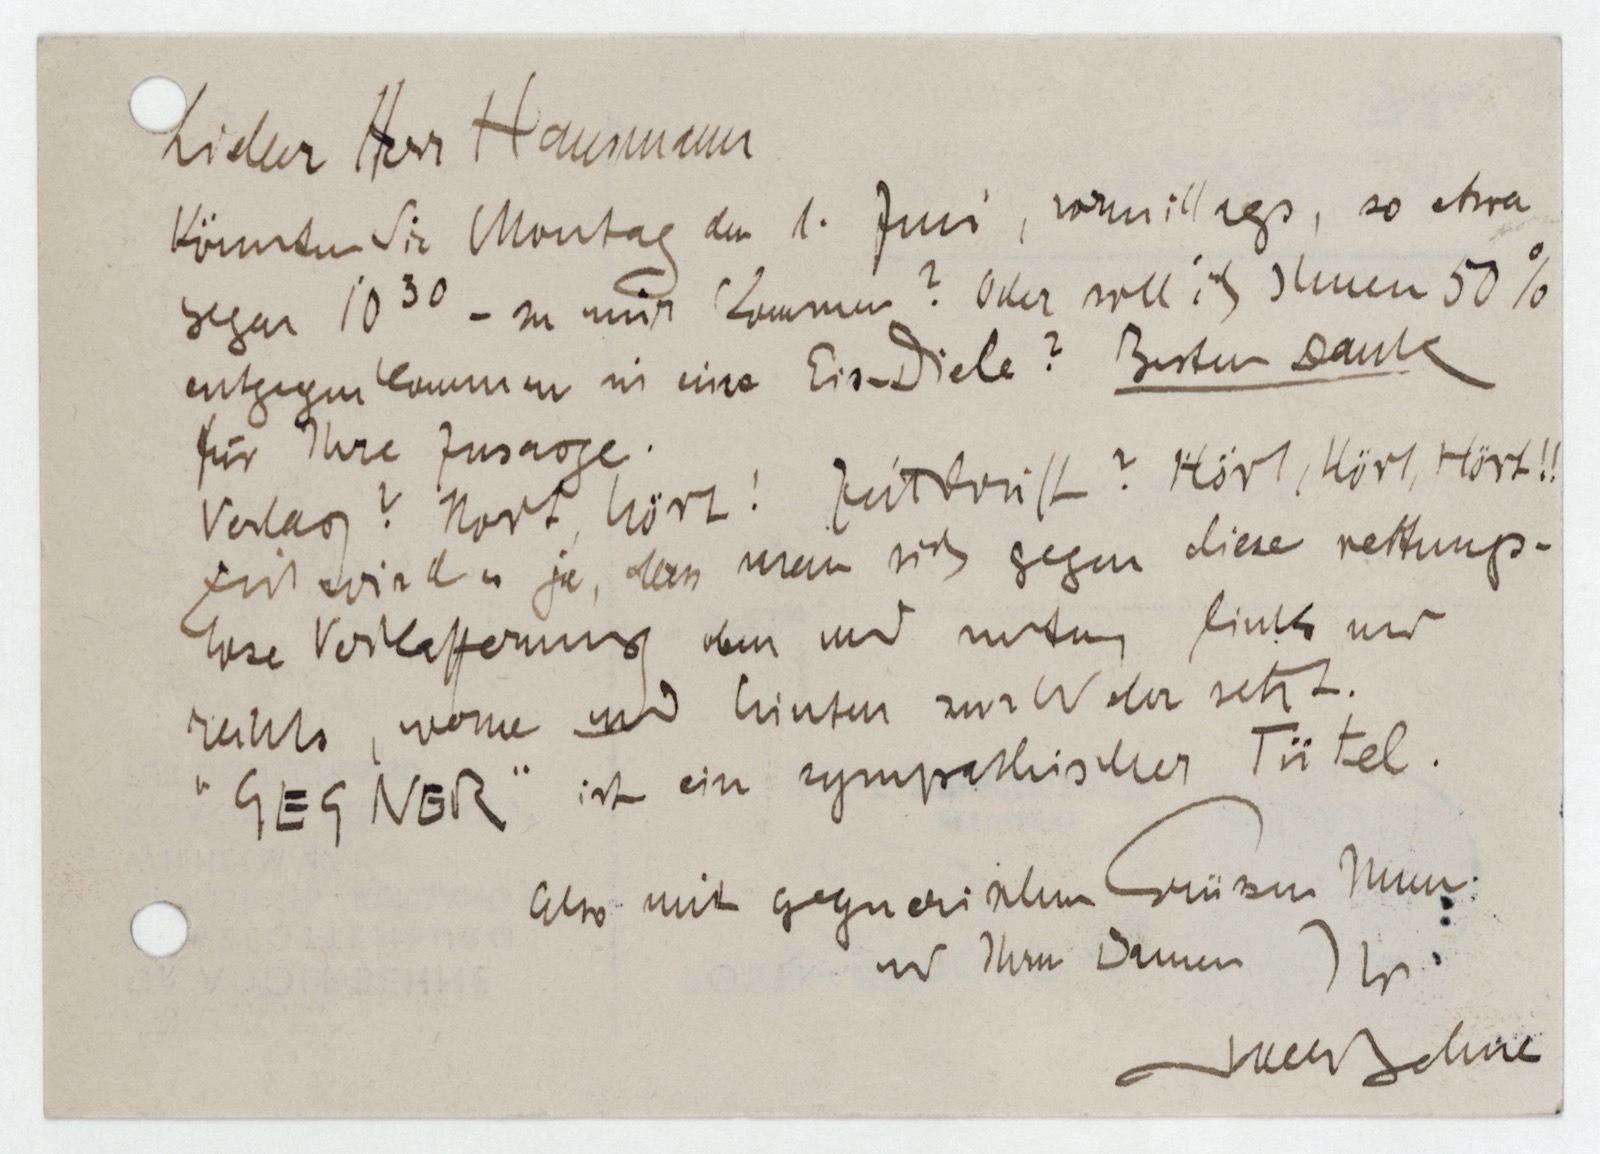 Lieber Herr Hausmann
Könnten Sie Montag den 1. Juni, vormittags, so etwa
gegen 10 30 – zu mir kommen? Oder soll ich Ihnen 50%
entgegenkommen in eine Eis-Diele? Besten Dank
für Ihre Zusage.
Verlag? Hört, hört! Zeitschrift? Hört, Hört, Hört!!
Zeit wird es ja, dass man sich gegen diese rettungs-
lose oben und unten, links und
rechts, vorne und hinten zur Wehr setzt.
"GEGNER" ist ein sympathischer Titel.
Also mit gegnerischen Grüßen Ihnen
und Ihren Damen Ihr
Behne